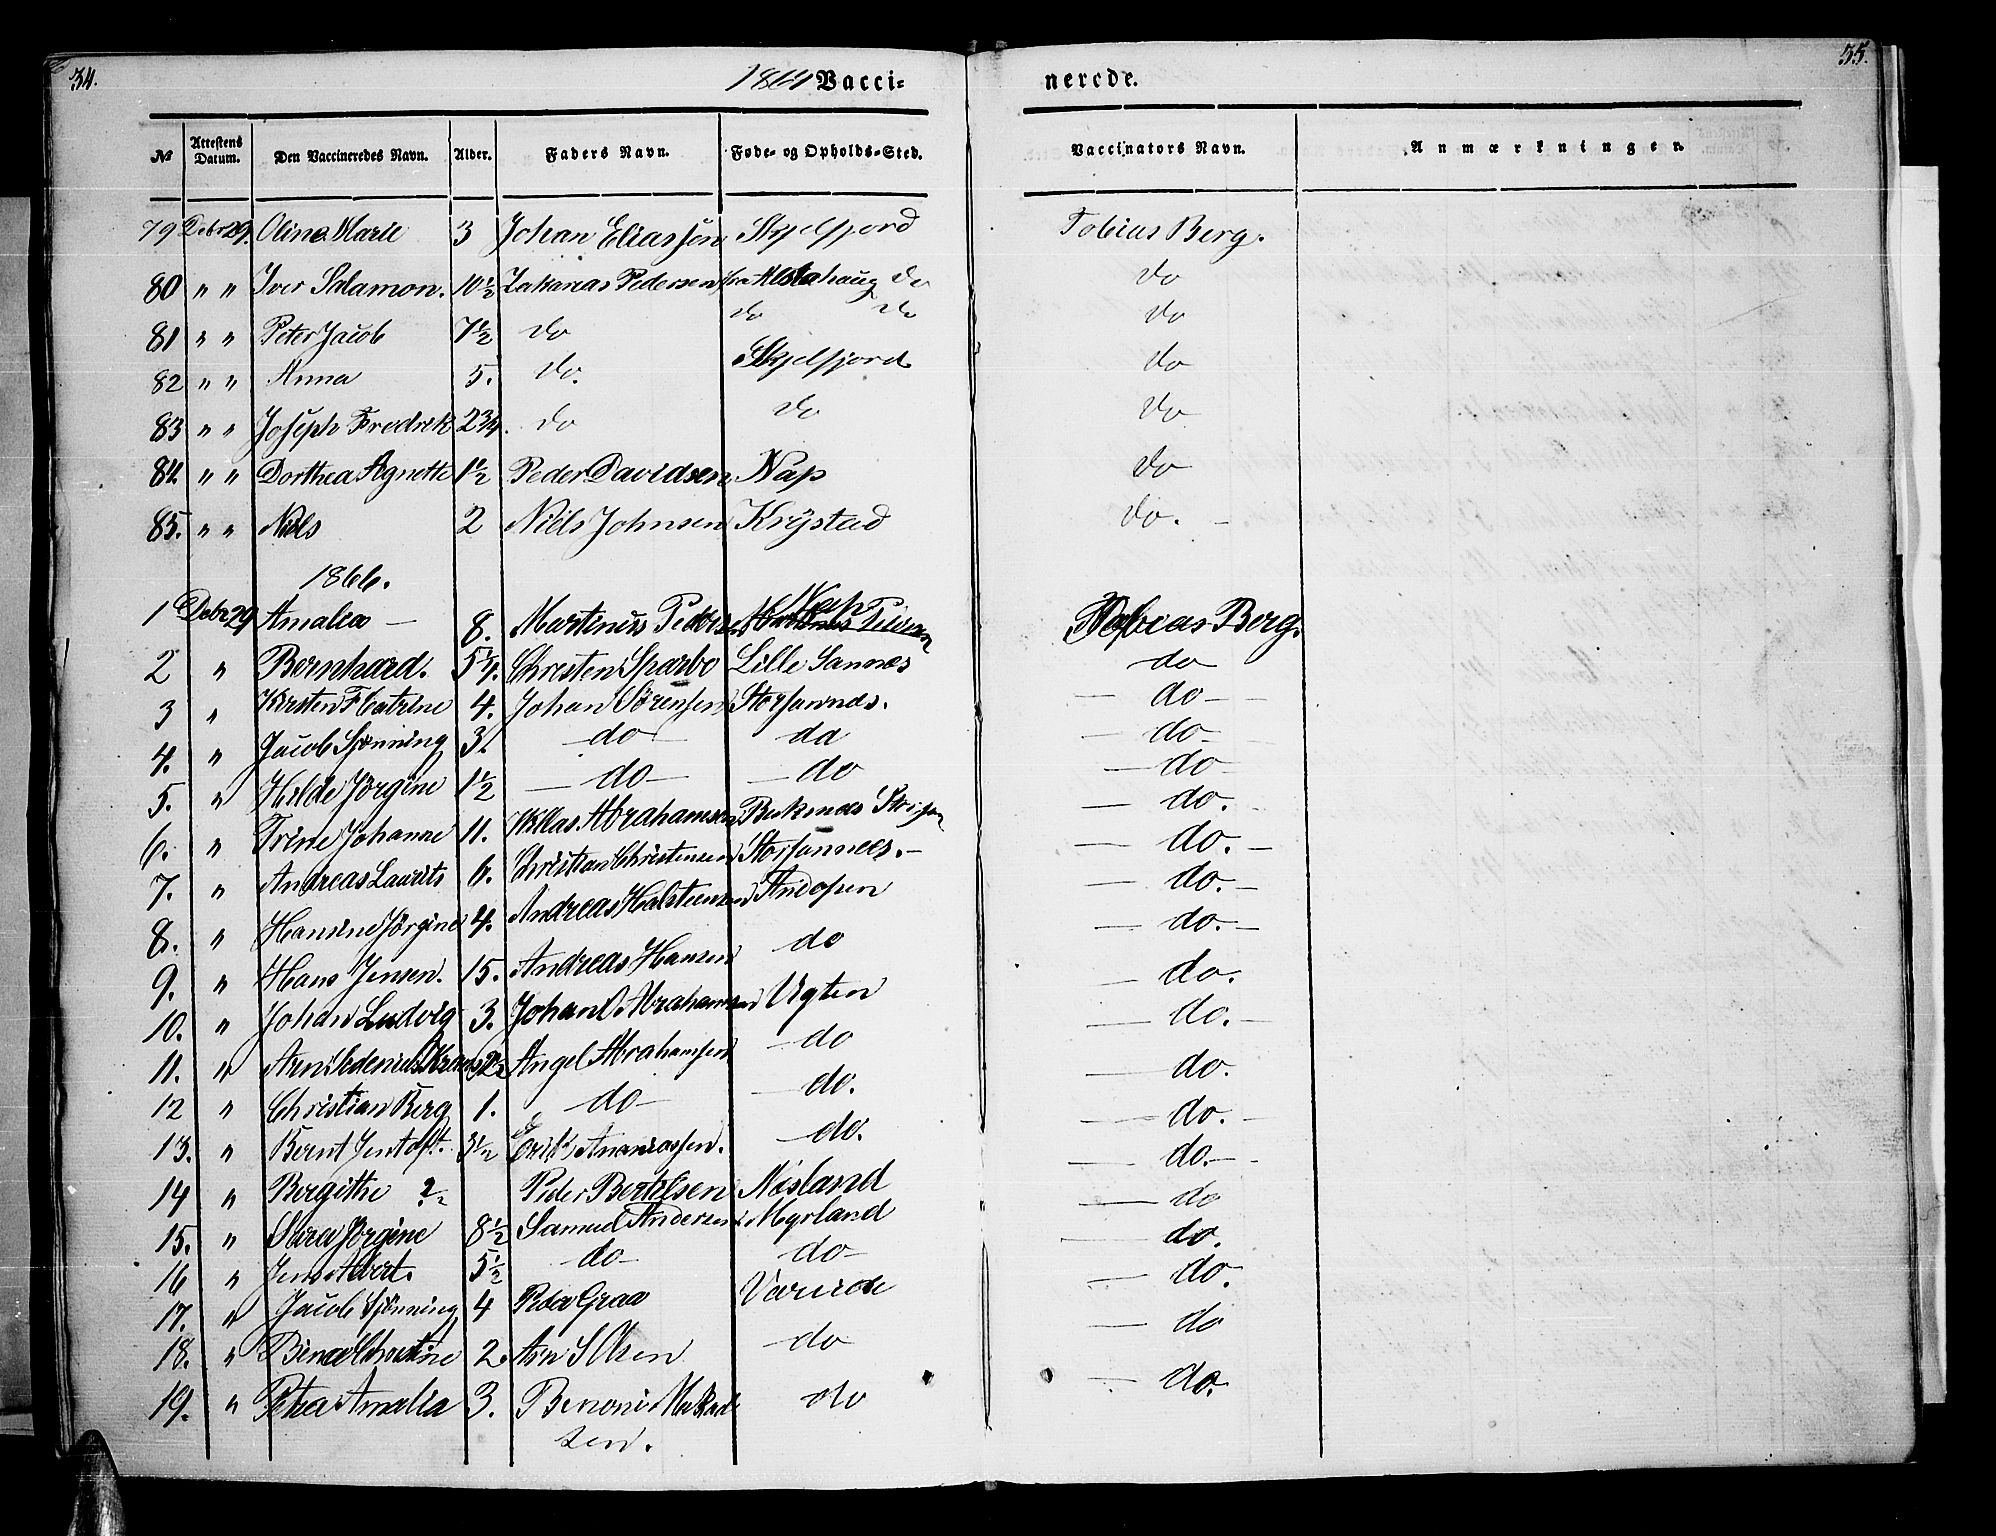 34. 35.
Vacci= nerede.
No Attestens Datum. Den Vaccineredes Navn. Alder. Faders Navn. Føde- og Opholds-Sted. Vaccinators Navn. Anmærkninger.
79 Debr 29. Oline Marie 3 Johan Eliassen Skjelfjord Tobias Berg.
80 " " Iver Salamon. 10½ Zakarias Pedersen fra Alstahaug do do
81 " " Peter Jacob 7½ do do do do
82 " " Anna 5. do. Skjelfjord do
83 " " Joseph Fredrik 2¾. do do do
84 " " Dorthea Agnette 1½ Peder Davidsen Nap do
85. " " Niels 2 Niels Johnsen Krystad do. -
1866.
1 Debr 29 Amalia — 8. Martinus Peders Nap Tobias Berg.
2 " Bernhard. 5¼. Christen Sparbo Lille Sannes do
3 " Kirsten Catrine 4. Johan Sørensen Storsannes. — do —
4. " Jacob Sjønning 3. — do — do — do —
5. " Hilde Jørgine 1½ — do — — do — do —
6. " Trine Johanne 11. Niklas Abrahamsen — do.
7. " Andreas Laurits 6. Christian Christensen Storsannes. — — do. —
8. " Hansine Jørgine 4. Andreas Halsteensen Andopen — do. —
9. " Hans Jensen. 15. Andreas Hansen do — do. —
10. " Johan Ludvig 3. Johan Abrahamsen Ugten — do.
11. " Angel Abrahamsen — do — do. —
12 " Christian Berg 1. — do — — do. — do.
13. " Bernt Jentoft. 3½ Erik Ananiassen. — do. — do. —
14 " Bergithe 2- Peder Bertelsen Nesland — do. —
15. " Jørgine 8½ Samuel Andersen Myrland — do
16 " Jens Albert. 5½ — do — do — — do.
17. " Jacob Sjønning 4 Peder Graa — do.
18. " 2. Olsen — do — do
19. " Petra Amalia 3. Benoni do — do.
sen.